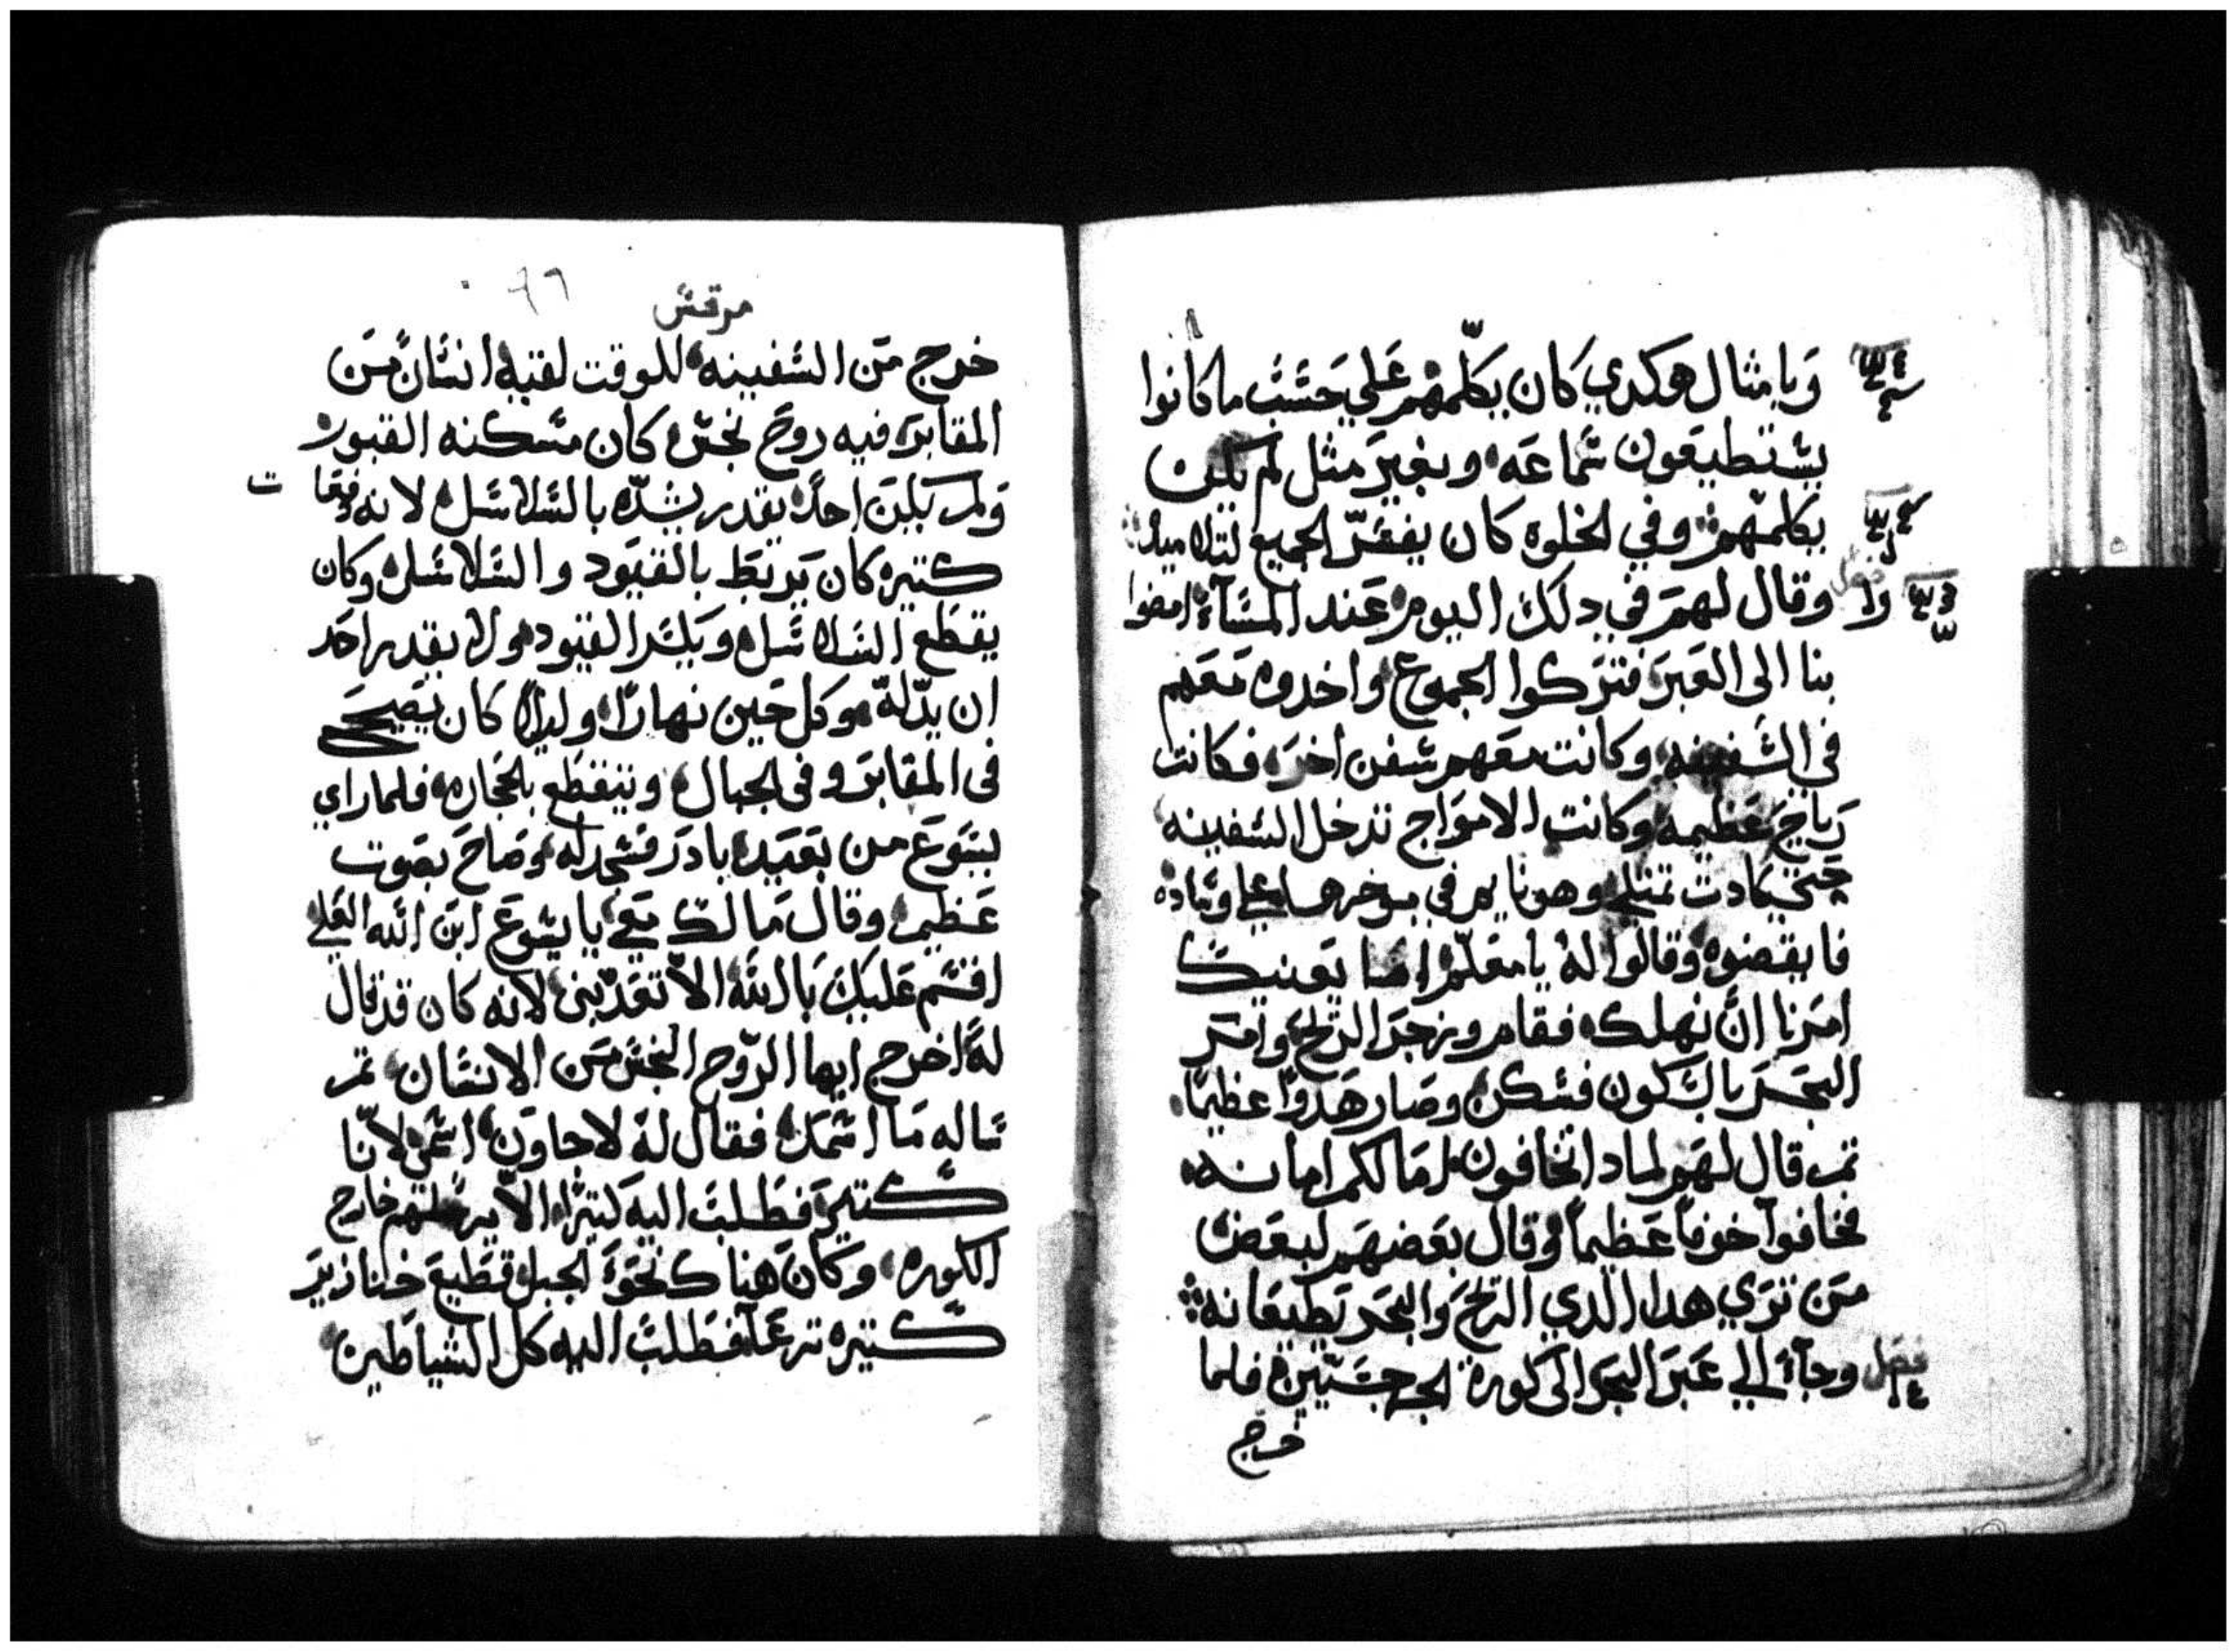 وبامثال هوكدي كان يكلمهم علي حسب ما كانوا
يستطيعون سماعه وبغير مثل لم يكن
يكلمهم وفي الخلوه كان يفسر الجميع لتلاميده
وقال لهم في دلك اليوم عند المساء امضوا
بنا الى العبر فتركوا الجموع واخدوه معهم
في السفينه وكانت معهم سفن اخر فكانت
رياح عظيمه وكانت الامواج تدخل السفينه
حتي كادت تمتلي وهو نايم في موخرها علي وساده
فايقضوه وقالوا له يا معلم اما يعنيك
امرنا ان نهلك فقام وزجر الريح وامر
البحر بالسكون فسكن وصار هدوا عظيما
تم قال لهم لمادا تخافون اما لكم امانه
فخافوا خوفا عظيما وقال بعضهم لبعض
من تري هدا الدي الريح والبحر تطيعانه
فصل وجاء الي عبر البحر الى كورة الجرجسيين فلما
خرج
مرقس
خرج من السفينه للوقت لقيه انسان من
المقابر فيه روح نجس كان مسكنه القبور
ولم يكن احد يقدر يشده بالسلاسل لانه دفعات
كتيره كان يربط بالقيود والسلاسل وكان
يقطع السلاسل ويكسر القيود ولا يقدر احد
ان يدلله وكل حين نهارا وليلا كان يصيح
في المقابر وفي الجبال ويتقطع بالحجاره فلما راي
يسوع من بعيد بادر فسجد له وصاح بصوت
عظيم وقال ما لك معي يا يسوع ابن الله العلي
اقسم عليك بالله الا تعدبني لانه كان قد قال
له اخرج ايها الروح النجس من الانسان تم
ساله ما اسمك فقال له لاجاون اسمي لاننا
كتير فطلب اليه كتيرا الا يرسلهم خارج
الكوره وكان هناك نحو الجبل قطيع خنازير
كتيره ترعا فطلب اليه كل الشياطين